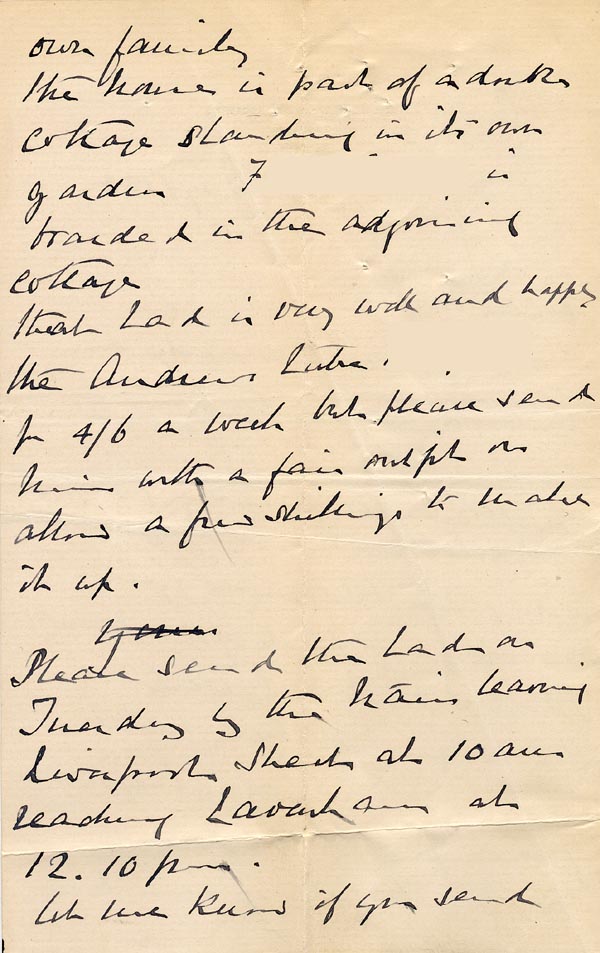 own family
the house is part of a double
cottage standing in its own
garden F is
boarded in the adjoining
cottage
that Lad is very well and happy
the Andrews take
for 4/6 a week but please send
him with a fair outfit or
allow a few shillings to make
it up.
Yours
Please send the Lad on
Tuesday by the train leaving
Liverpool Street at 10 am
reaching Lavenham at
12.10 pm.
let me know if you send